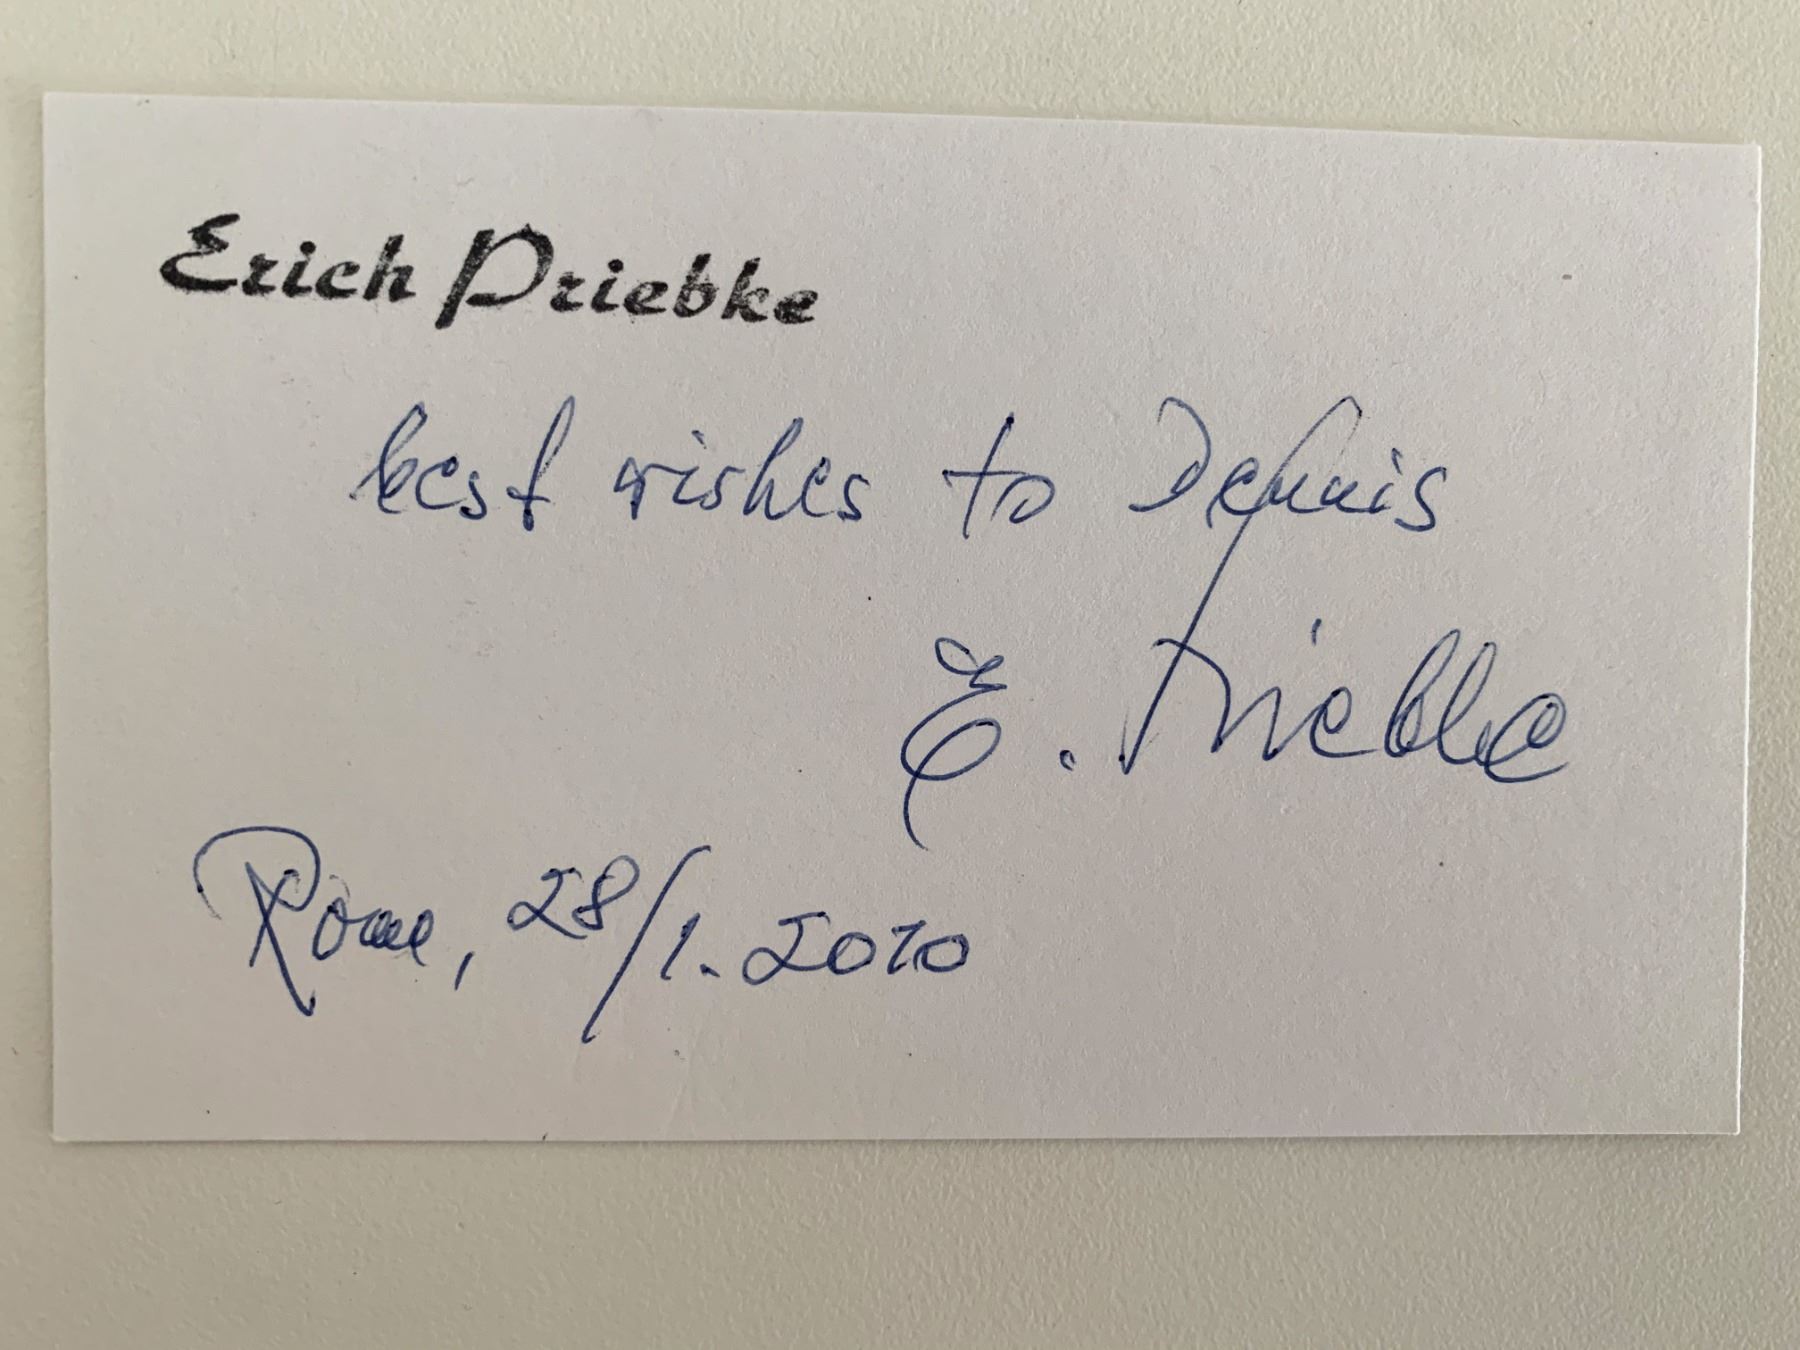 Erich Priebke
best wishes to Dennis
E. Priebke
Rome, 28/1.2010